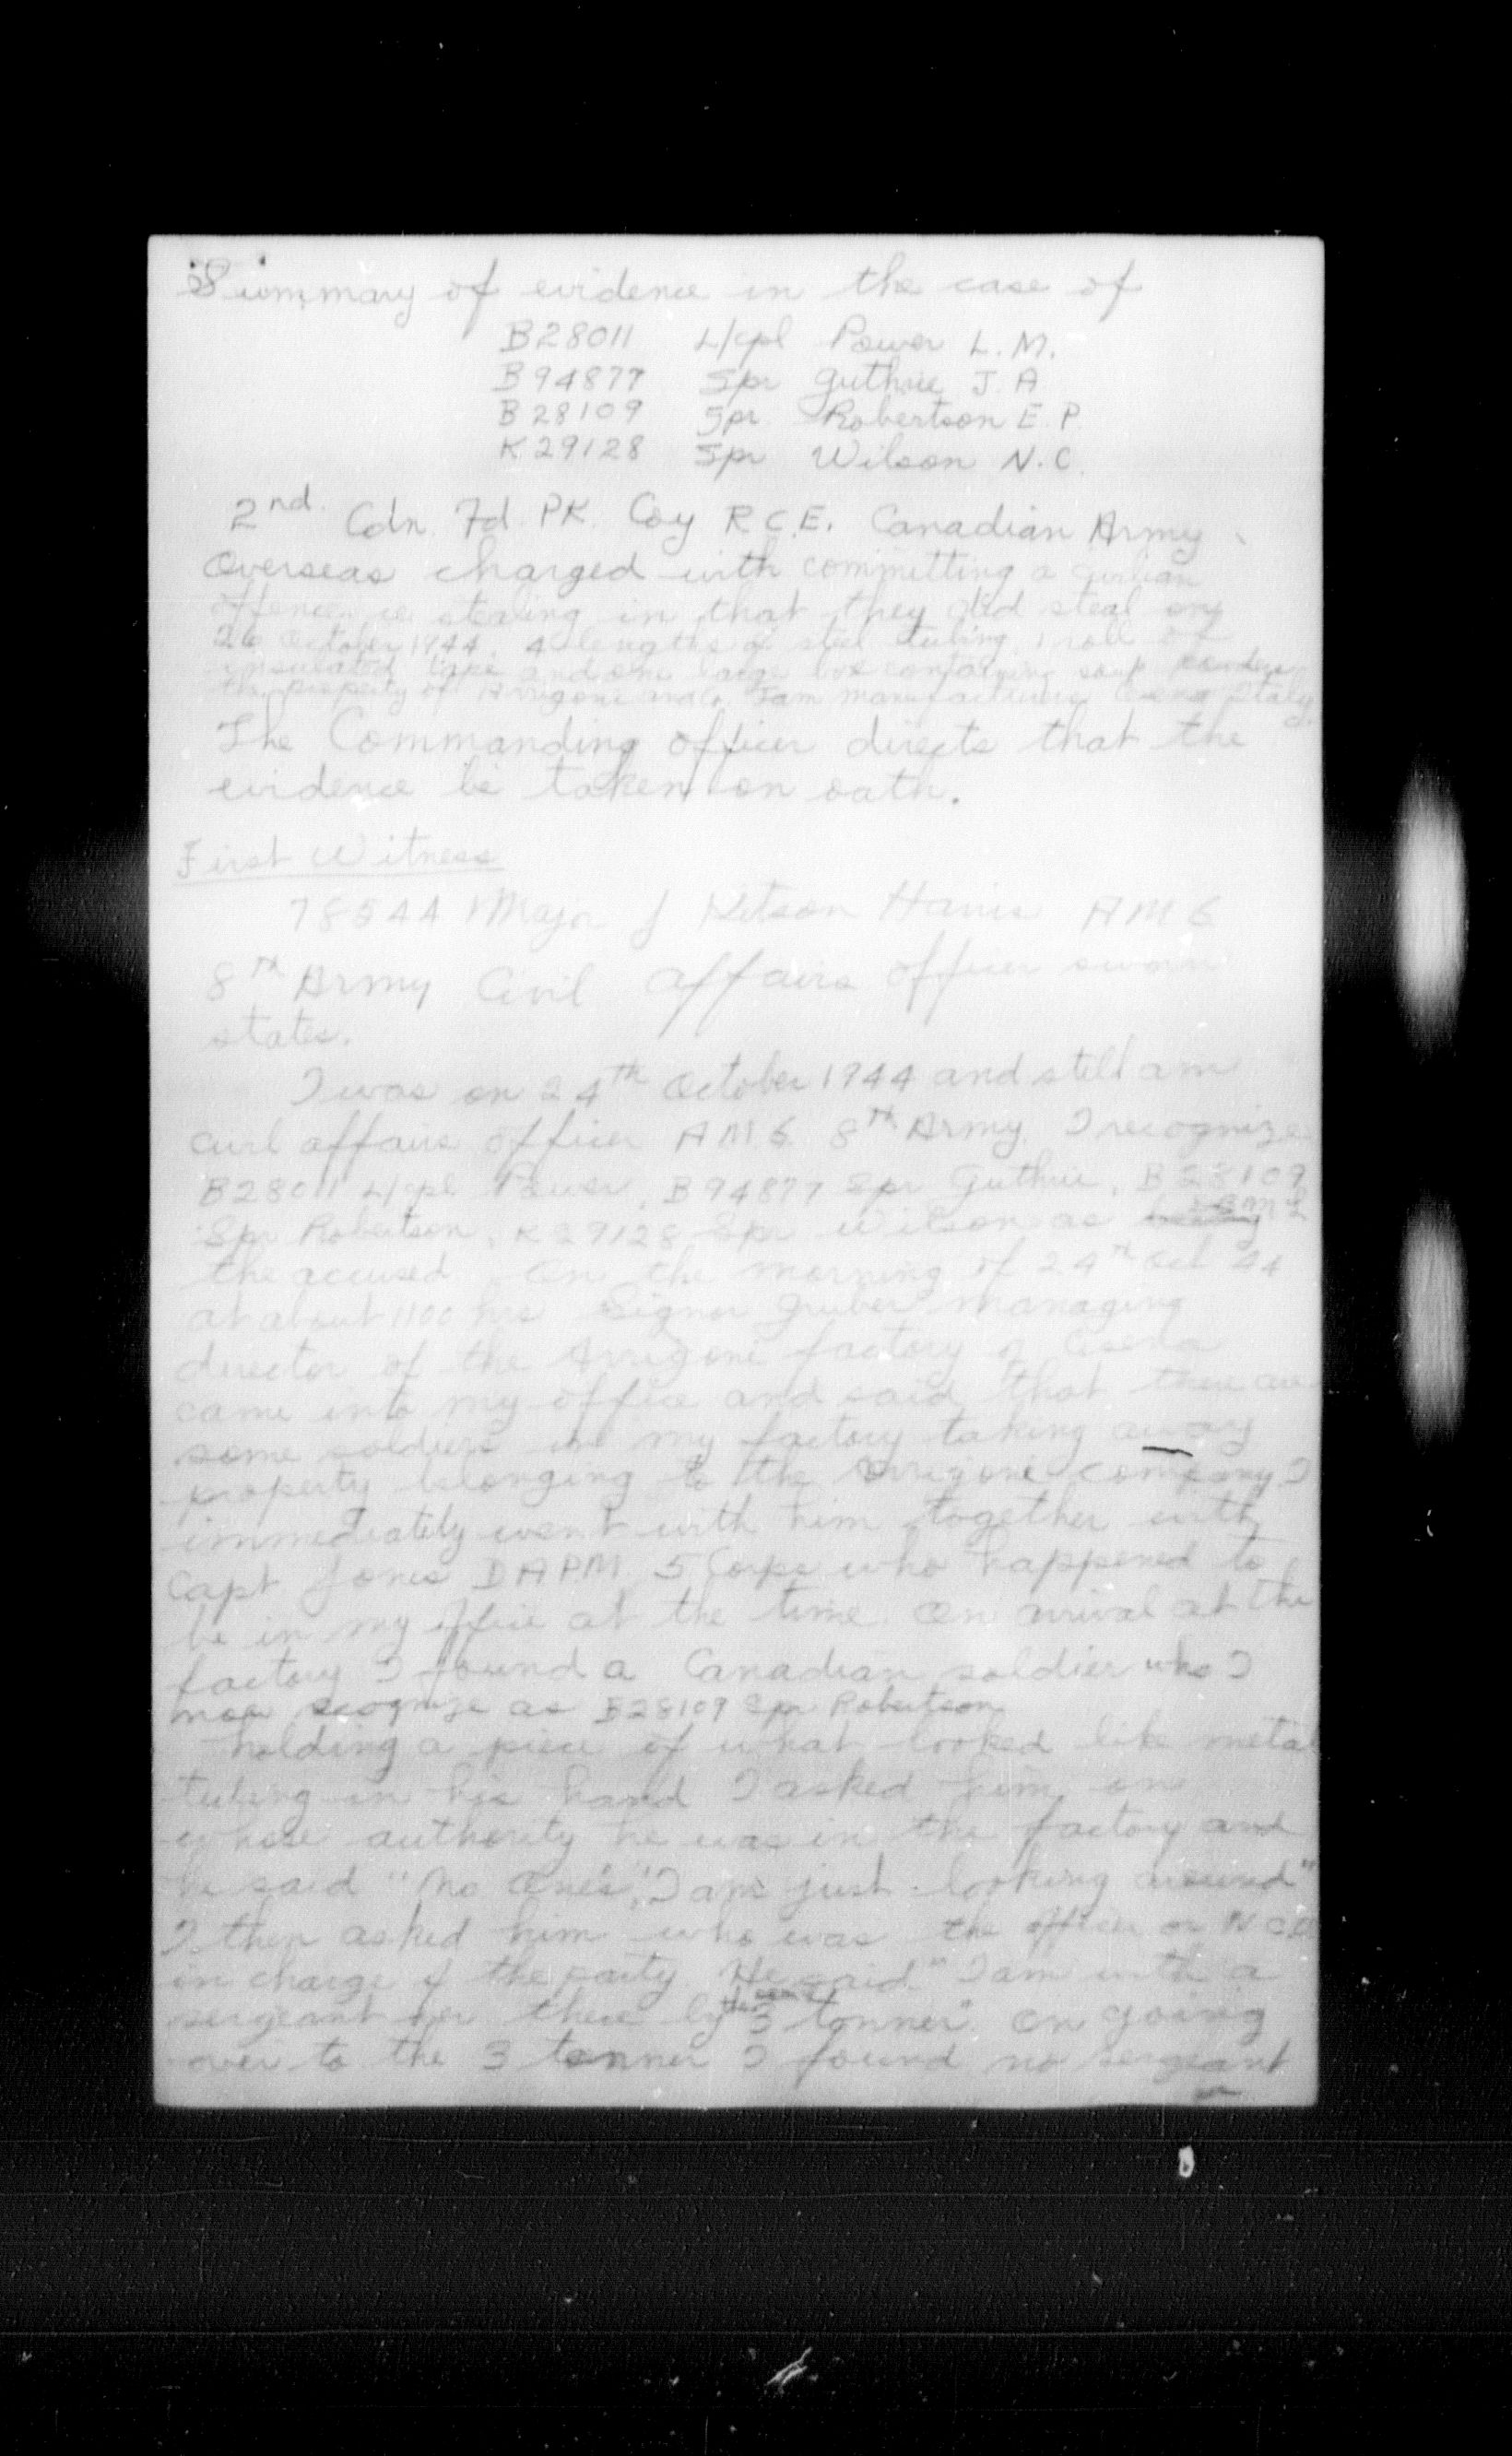 Summary of evidence in the case of
B28011 L/cpl Power L.M.
B94877 Spr Guthrie J.A
B28109 Spr. Robertson E.P.
K29128 Spr Wilson N.C.
2nd. Cdn. Fd. PK. Coy R.C.E. Canadian Army
Overseas charged with committing a civilian
offence ie stealing in that they did steal on
26 October 1944, 4 lengths of steel tubing, 1 roll of
insulated tape and one large box containing soup powders
the property of Arrigoni and Co. Jam manufacturing Cesena Italy.
The Commanding officer directs that the
evidence be taken on oath.
First Witness
78544 Major J Kitson Harris AMG
8th Army Civil Affairs officer sworn
states.
I was on 24th October 1944 and still am
civil affairs officer A.M.G. 8th Army. I recognize
B28011 L/cpl Power, B94877 Spr Guthrie, B28109
Spr Robertson, K29128 Spr Wilson as
the accused. On the morning of 24th Oct 44
at about 1100 hrs Signor Gruber managing
director of the Arrigoni factory of Cesena
came into my office and said that there are
some soldiers in my factory taking away
property belonging to the Arrigoni company. I
immediately went with him together with
Capt. Jones DAPM. 5 Corps who happened to
be in my office at the time. On arrival at the
factory I found a Canadian soldier who I
now recognize as B28109 Spr Robertson
holding a piece of what looked like metal
tubing in his hand I asked him on
whose authority he was in the factory and
he said "No one's", "I am just looking around"
I then asked him who was the officer or NCO
in charge of the party. He said "I am with a
sergeant over there by the 3 tonner". On going
over to the 3 tonner I found no sergeant